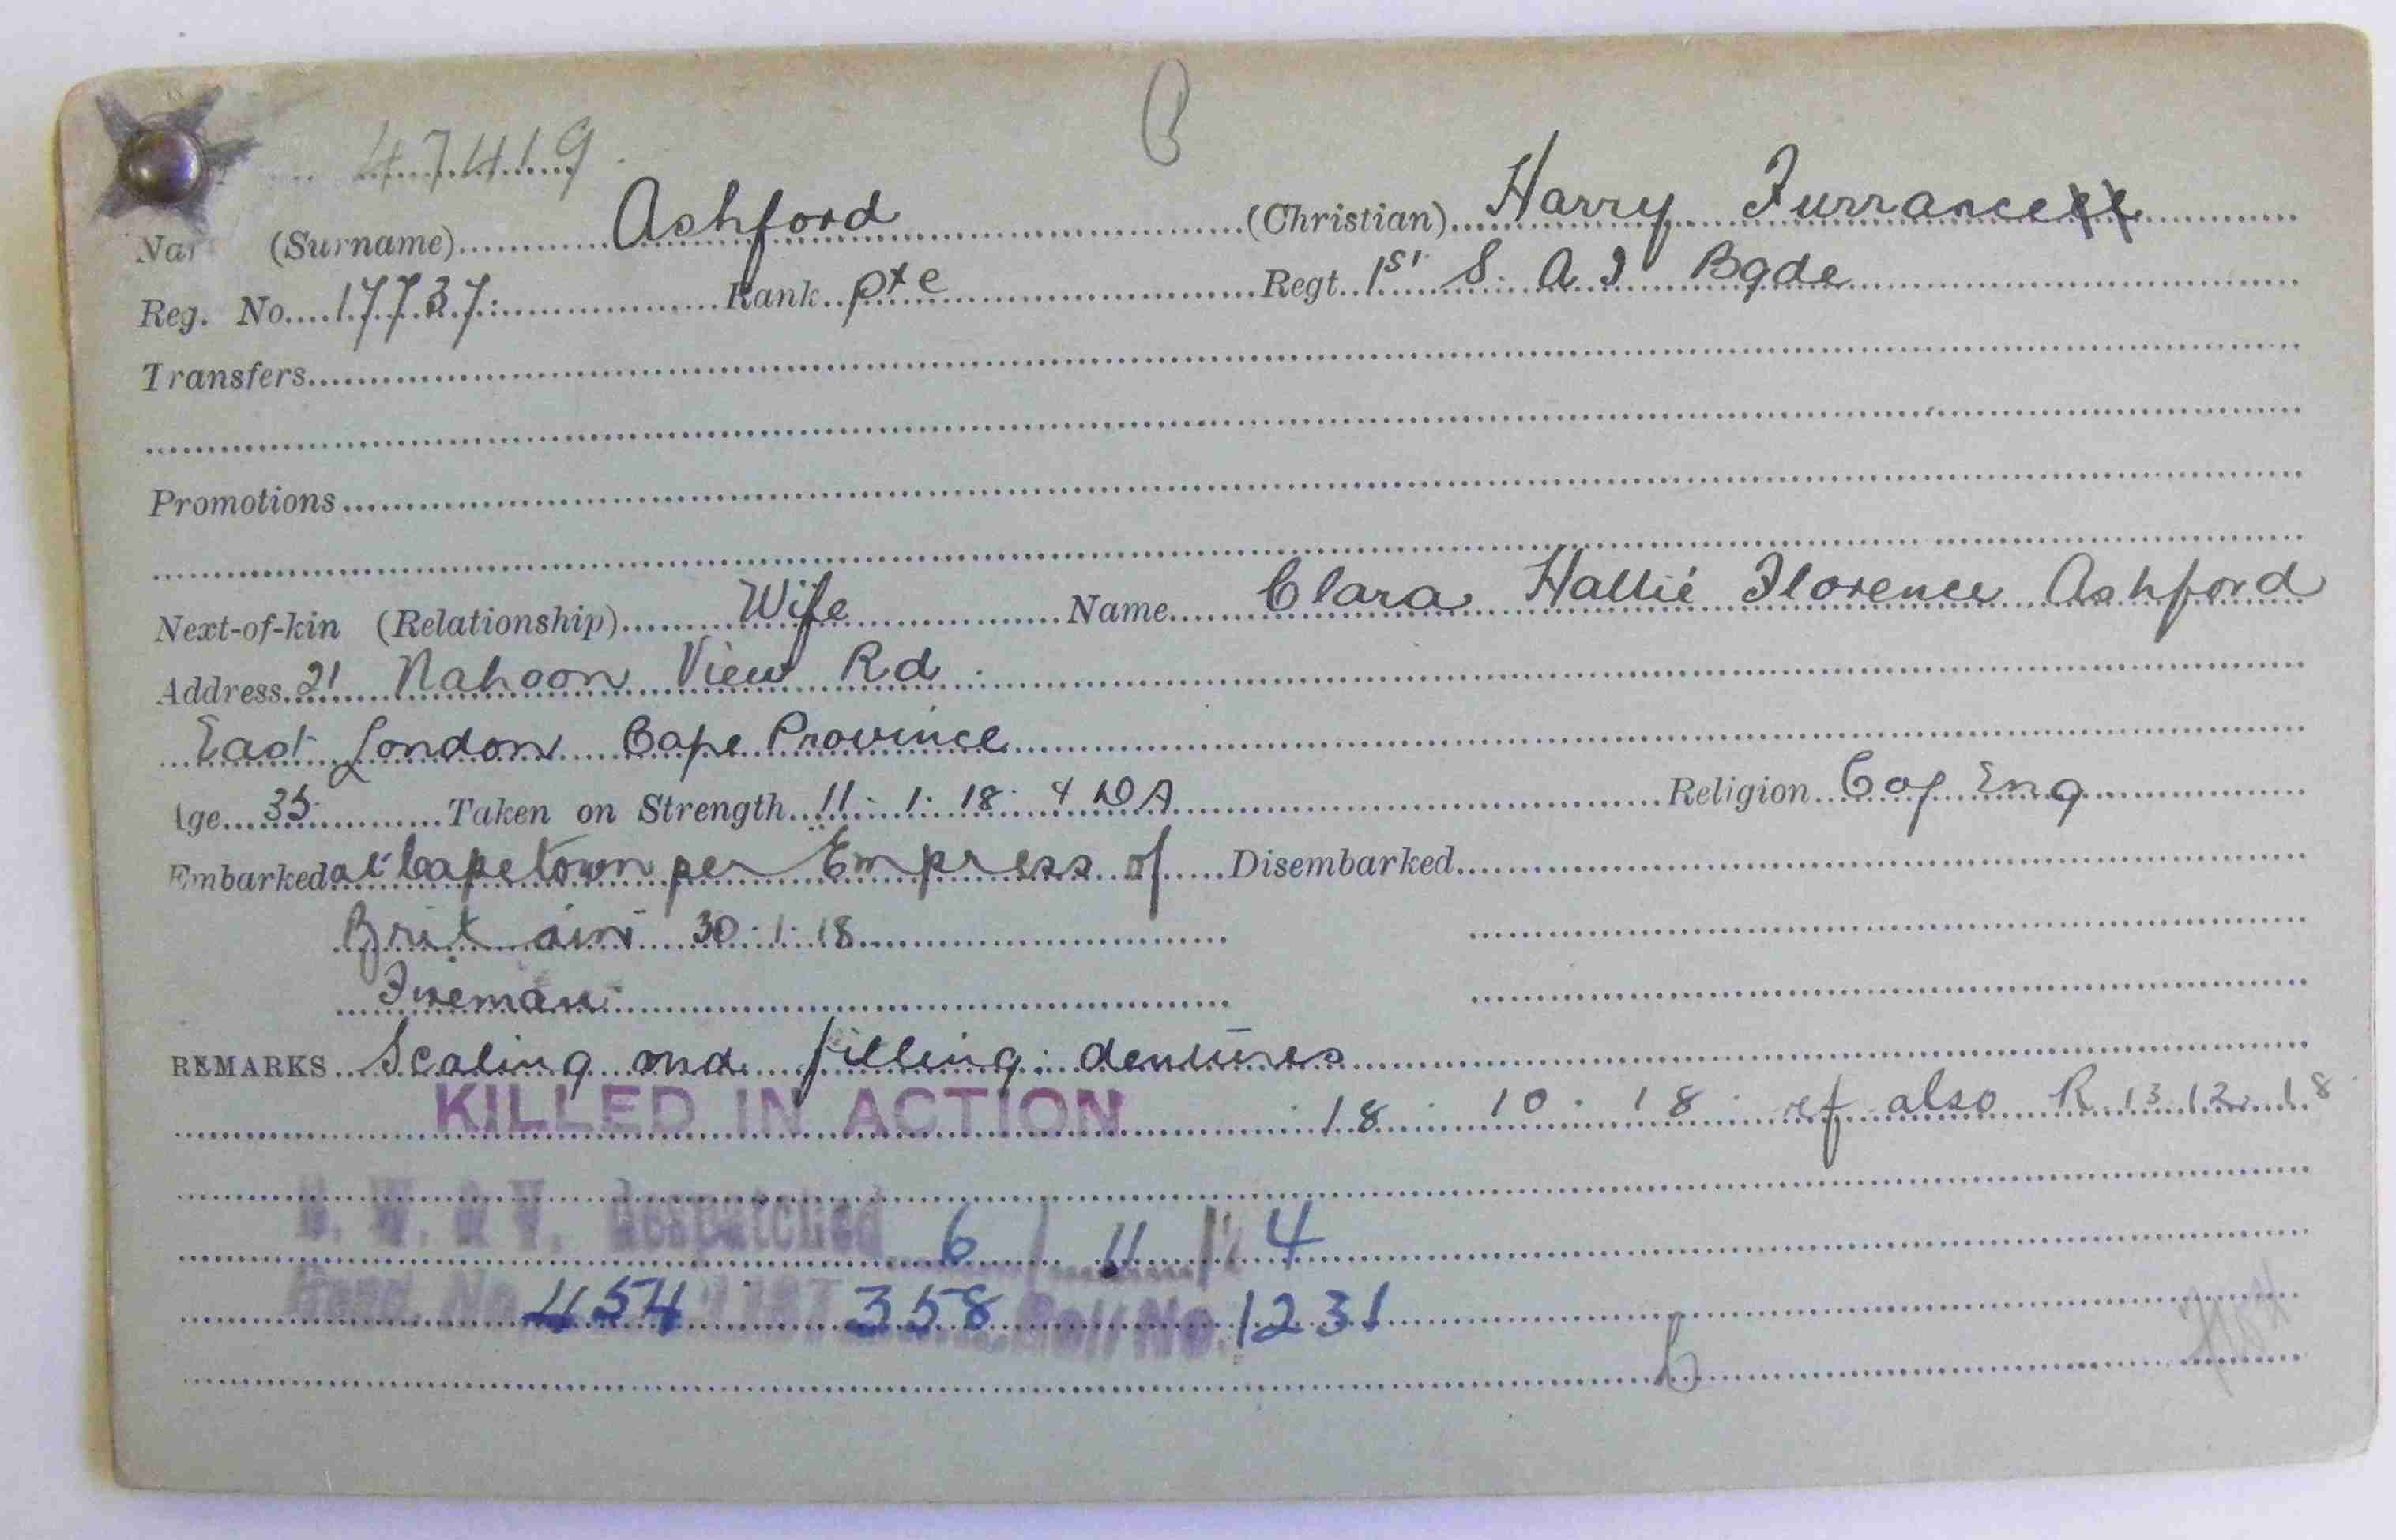 B
47419.
Nar (Surname) Ashford (Christian) Harry Furrance
Reg. No. 17737. Rank pte Regt. 1st S. A I Bgde
Transfers
Promotions
Next-of-kin (Relationship) Wife Name Clara Hallie Florence Ashford
Address 21 Nahoon View Rd.
East London Cape Province
Age 35 Taken on Strength 11. 1. 18. Religion C of Eng
Embarked at Capetown per Empress of Disembarked
Britain 30.1.18
Fireman
REMARKS Scaling and filling. dentures
KILLED IN ACTION 18. 10. 18. ref also R 13.12.18
B. W. & V. despatched 6 / 11 / 24
454 358 Roll No. 1231
b